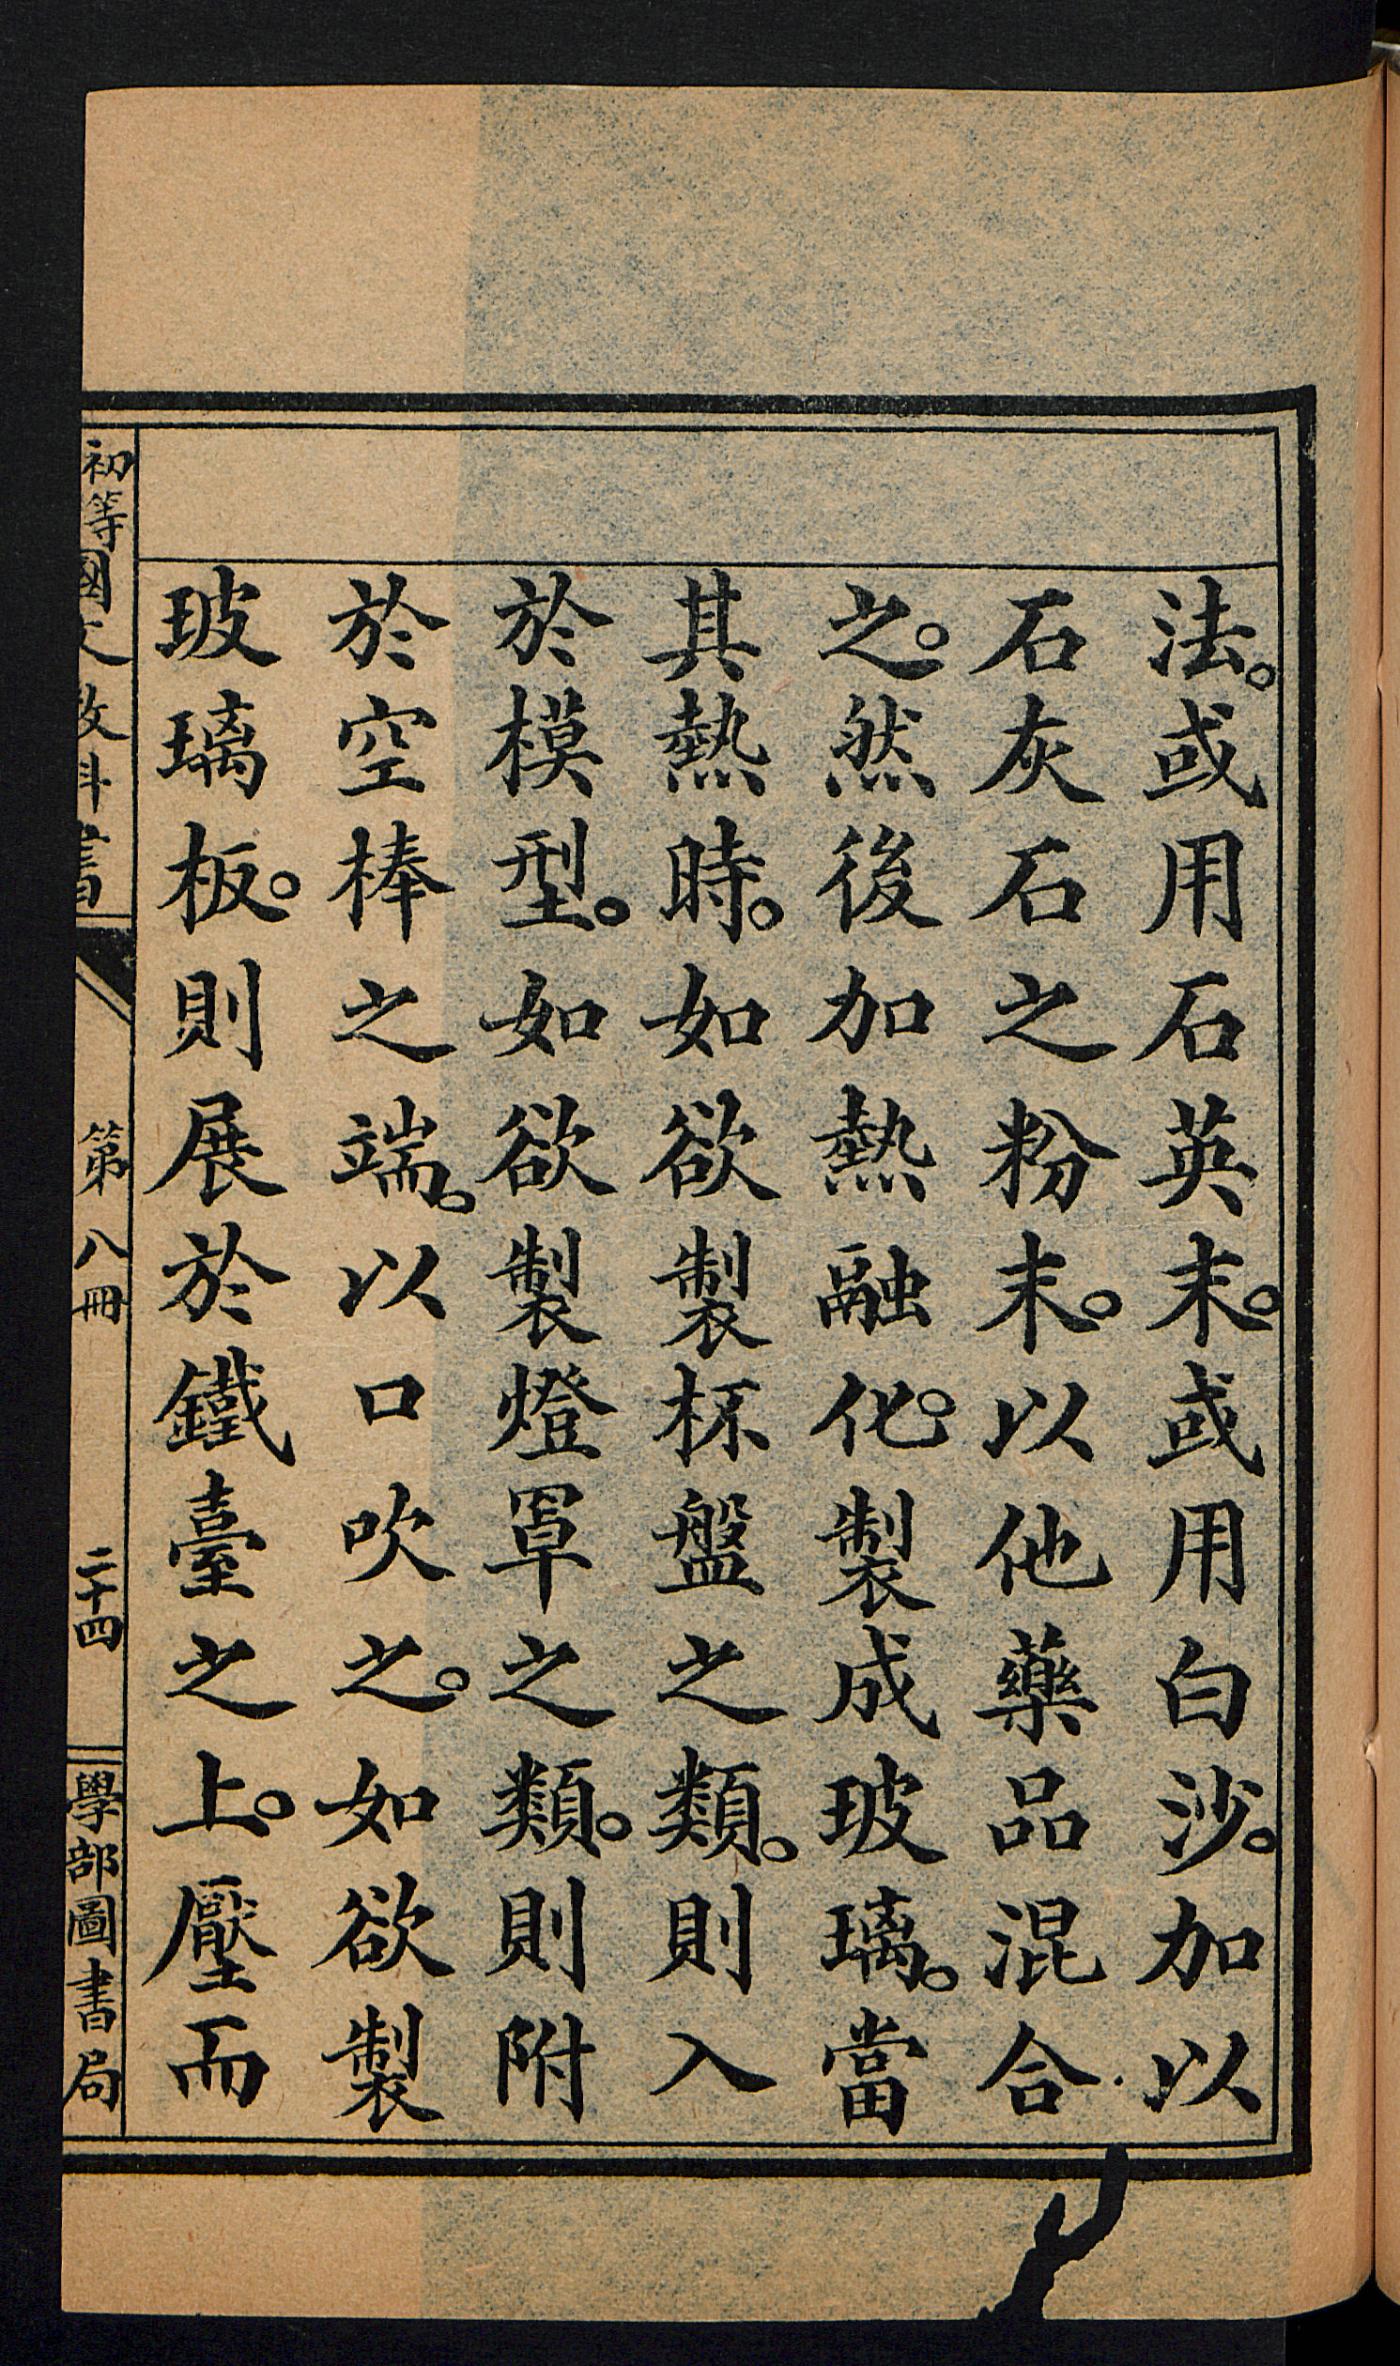 法。或用石英末。或用白沙。加以
石灰石之粉末。以他藥品混合
之。然後加熱融化。製成玻璃。當
其熱時。如欲製杯盤之類。則入
於模型。如欲製燈罩之類。則附
於空棒之端。以口吹之。如欲製
玻璃板。則展於鐵臺之上。壓而
初等國文教科書 第八冊 二十四 學部圖書局